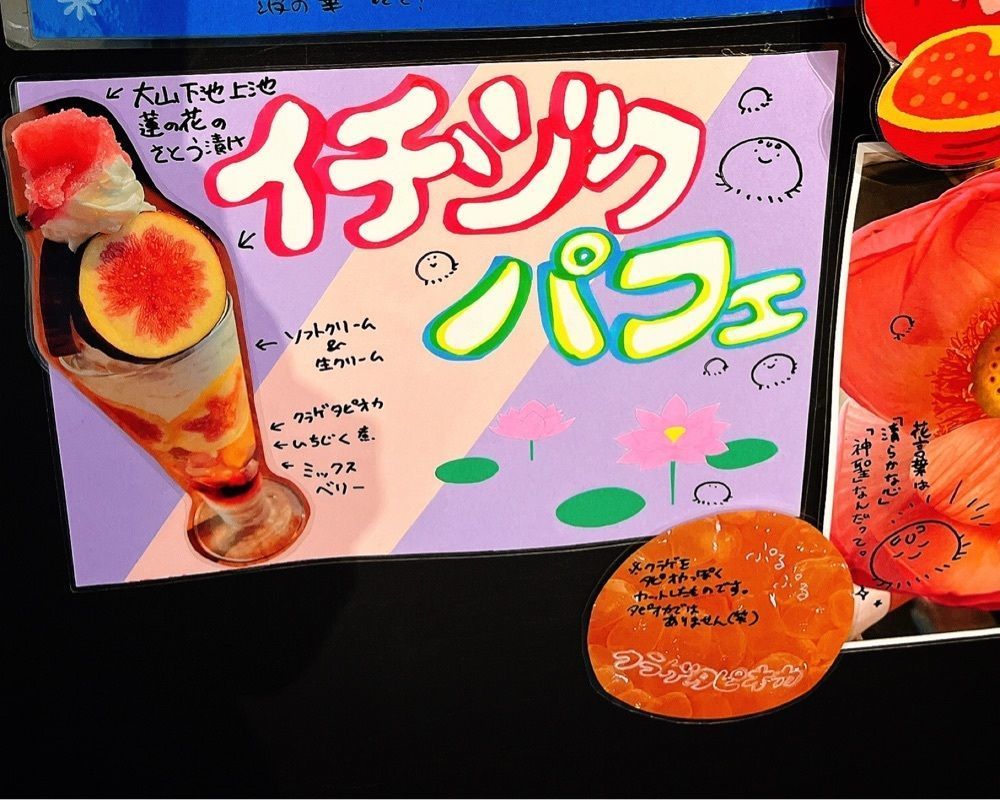 大山下池上池
蓮の花の
さとう漬け
イチジク
パフェ
ソフトクリーム
&
生クリーム
クラゲタピオカ
いちじく煮
ミックス
ベリー
花言葉は
「清らかな心」
「神聖」なんだって。
※クラゲを
タピオカっぽく
カットしたものです。
タピオカでは
ありません(笑)
ぷる
ぷる
クラゲタピオカ